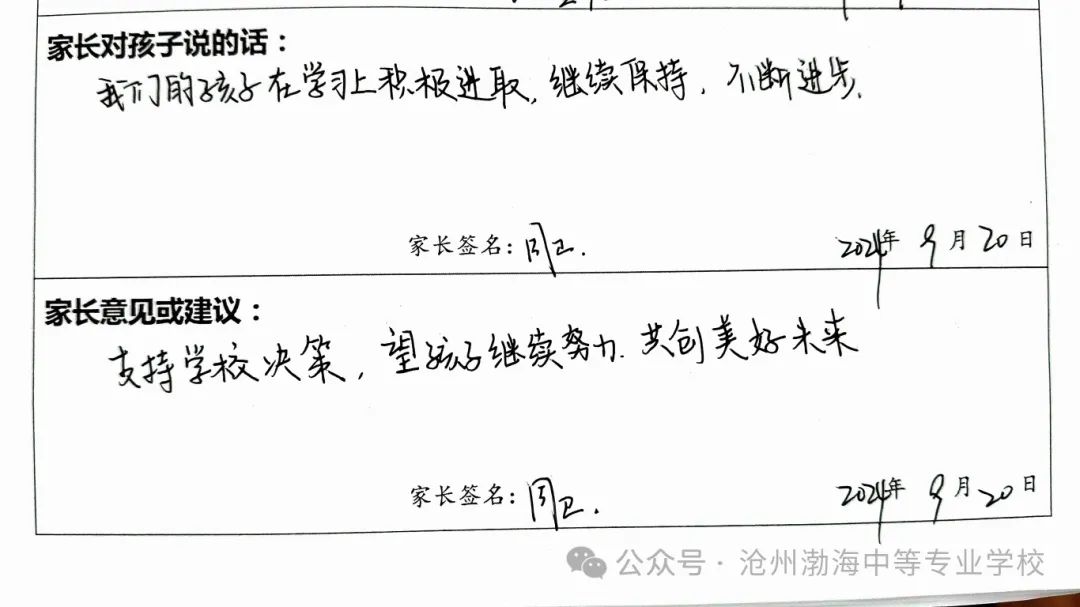 家长对孩子说的话：
我们的孩子在学习上积极进取，继续保持，不断进步.
家长签名：周卫. 2024年 9月20日
家长意见或建议：
支持学校决策，望孩子继续努力.共创美好未来
家长签名：周卫. 2024年 9月20日
公众号·沧州渤海中等专业学校